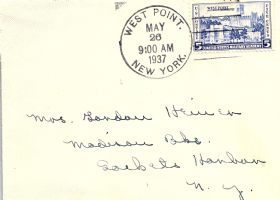 WEST POINT.
MAY
26
9:00 AM
1937
NEW YORK.
5 UNITED STATES MILITARY ACADEMY 5
Mrs. Gordon Heiner
Madison Bks.
Sackets Harbor
N. Y.